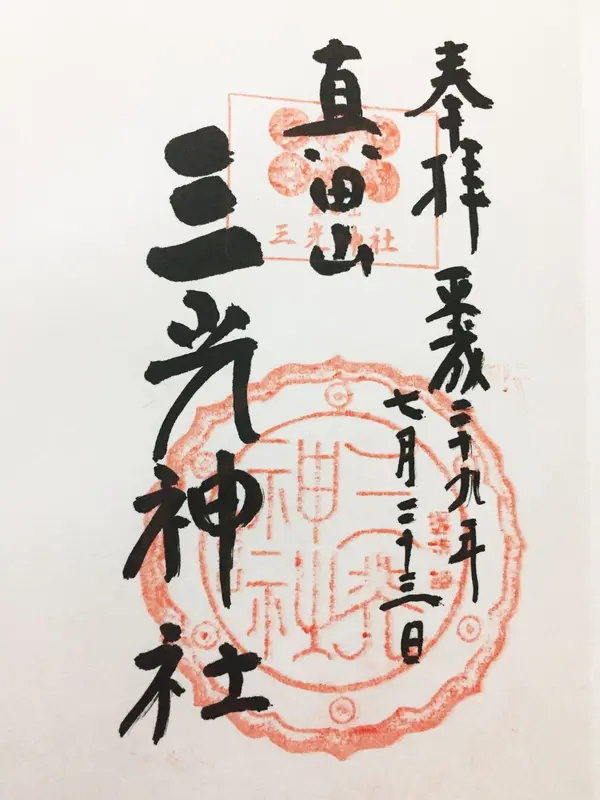 奉拝
平成二十九年
七月二十三日
真田山
三光神社
三光神社
三光神社